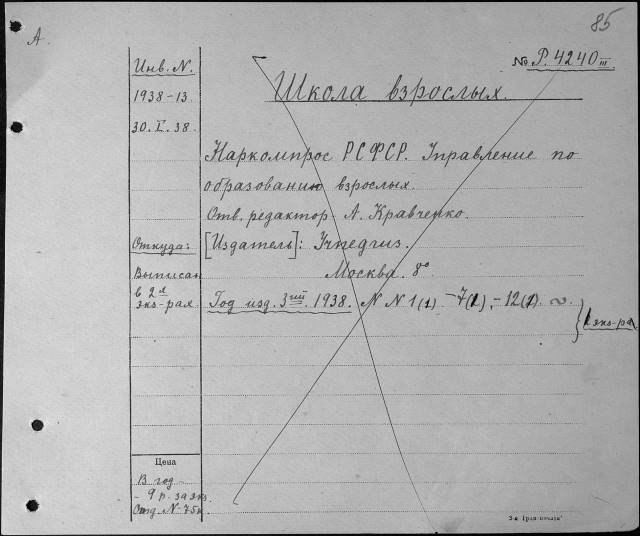 85
А.
№ Р. 4240 III
Инв. N.
1938-13
30.I.38.
Школа взрослых.
Наркомпрос РСФСР. Управление по
образованию взрослых.
Отв. редактор А. Кравченко.
Откуда:
[Издатель]: Учпедгиз.
Выписан
в 2х
экз-рах
Москва. 8°
Год изд. 3ий. 1938. NN 1(1) -7(1), -12(1).
1 экз-ра
Цена
В год
- 9 р. за экз.
Отд. N-75к.